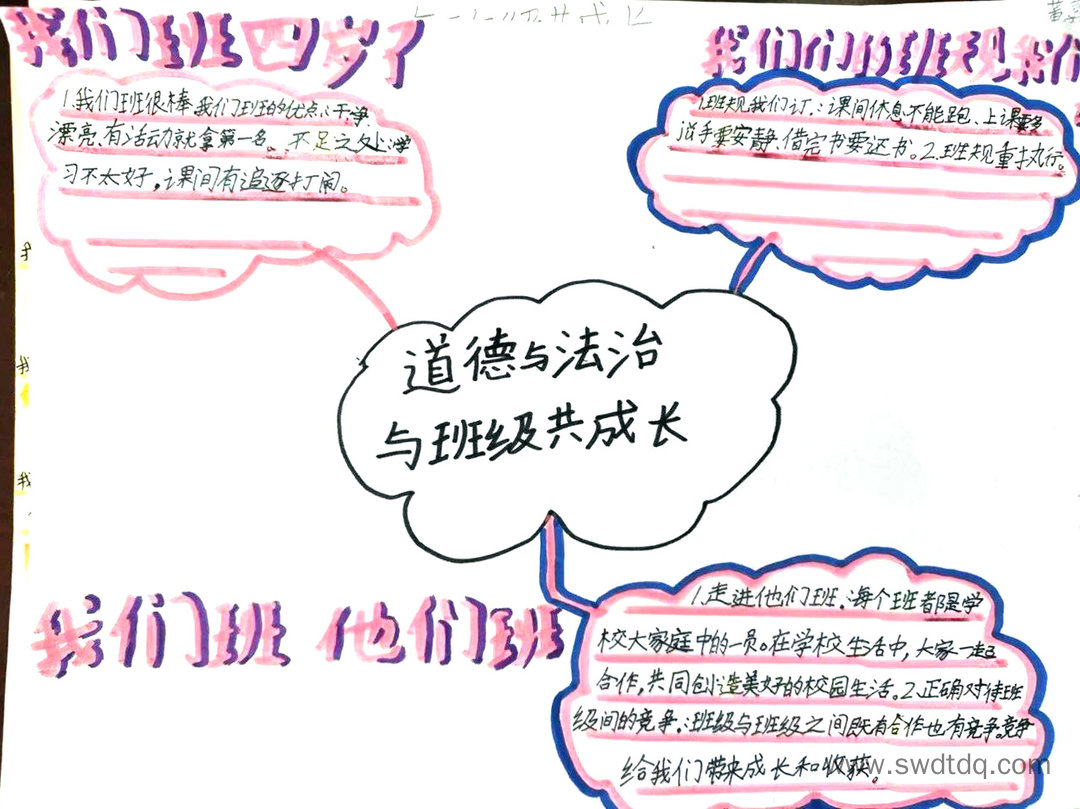 我们班四岁了
1.我们班很棒.我们班的优点:干净
漂亮、有活动就拿第一名。不足之处:学
习不太好,课间有追逐打闹。
我们们的班规我们
1.班规我们订.:课间休息不能跑、上课要多
说手要安静、借完书要还书。2.班规重执行。
道德与法治
与班级共成长
我们班 他们班
1.走进他们班.每个班都是学
校大家庭中的一员。在学校生活中,大家一起
合作,共同创造美好的校园生活。2.正确对待班
级间的竞争.:班级与班级之间既有合作也有竞争。竞争
给我们带来成长和收获。
www.swdtdq.com